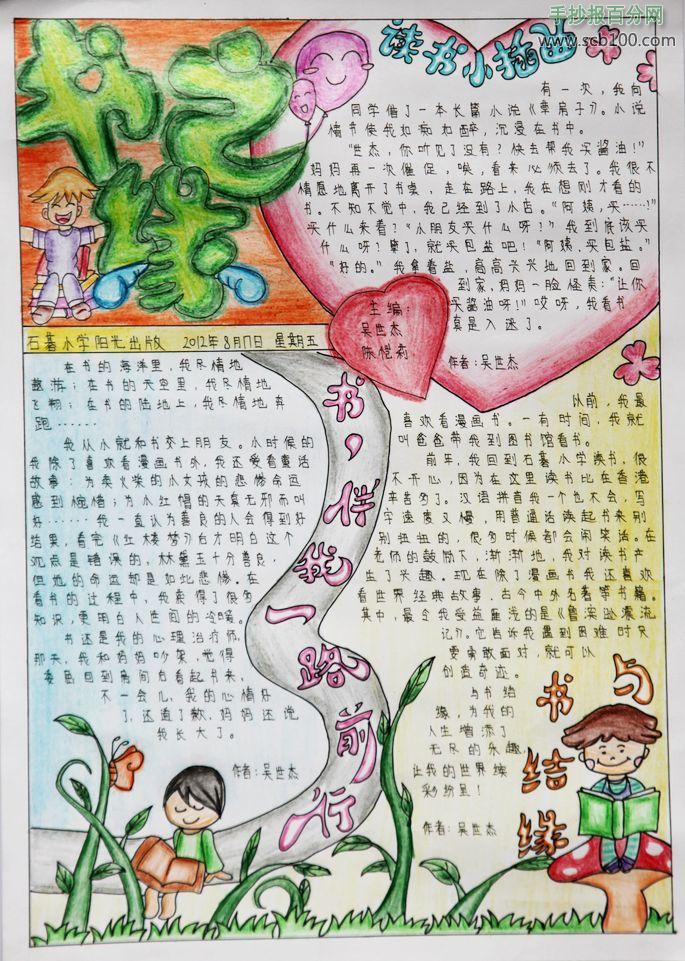 手抄报百分网
www.scb100.com
书之缘
读书小插曲
有一次，我向
同学借了一本长篇小说《草房子》。小说
情节使我如痴如醉，沉浸在书中。
“世杰，你听见了没有？快去帮我买酱油！”
妈妈再一次催促，唉，看来必须去了。我很不
情愿地离开了书桌，走在路上，我在想刚才看的
书。不知不觉中，我已经到了小店。“阿姨，买……！”
买什么来着？“小朋友买什么呀！？”我到底该买
什么呀！算了，就买包盐吧！“阿姨，买包盐。”
“好的。”我拿着盐，高高兴兴地回到家。回
到家，妈妈一脸怪奏：“让你
买酱油呀！”哎呀，我看书
真是入迷了。
作者：吴世杰
主编：
吴世杰
陈恺莉
石碁小学阳光出版 2012年8月17日 星期五
在书的海洋里，我尽情地
遨游；在书的天空里，我尽情地
飞翔；在书的陆地上，我尽情地奔
跑……
我从小就和书交上朋友。小时候的
我除了喜欢看漫画书外，我还爱看童话
故事：为卖火柴的小女孩的悲惨命运
感到惋惜；为小红帽的天真无邪而叫
好……我一直认为善良的人会得到好
结果，看完《红楼梦》后才明白这个
观点是错误的，林黛玉十分善良，
但她的命运却是如此悲惨。在
看书的过程中，我懂得了很多
知识，更明白人世间的冷暖。
书还是我的心理治疗师，
那天，我和妈妈吵架，觉得
委屈回到房间看起书来，
不一会儿，我的心情好
了，还道了歉，妈妈还说
我长大了。
作者：吴世杰
书，伴我一路前行
以前，我最
喜欢看漫画书。一有时间，我就
叫爸爸带我到图书馆看书。
前年，我回到石碁小学读书，很
不开心，因为在这里读书比在香港
辛苦多了。汉语拼音我一个也不会，写
字速度又慢，用普通话读起书来别
别扭扭的，很多时候都会闹笑话。在
老师的鼓励下，渐渐地，我对读书产
生了兴趣。现在除了漫画书我还喜欢
看世界经典故事、古今中外名著等书籍。
其中，最令我受益匪浅的是《鲁滨逊漂流
记》。它告诉我遇到困难时只
要勇敢面对，就可以
创造奇迹。
与书结
缘，为我的
人生增添了
无尽的乐趣，
让我的世界缤
彩纷呈！
作者：吴世杰
与书结缘